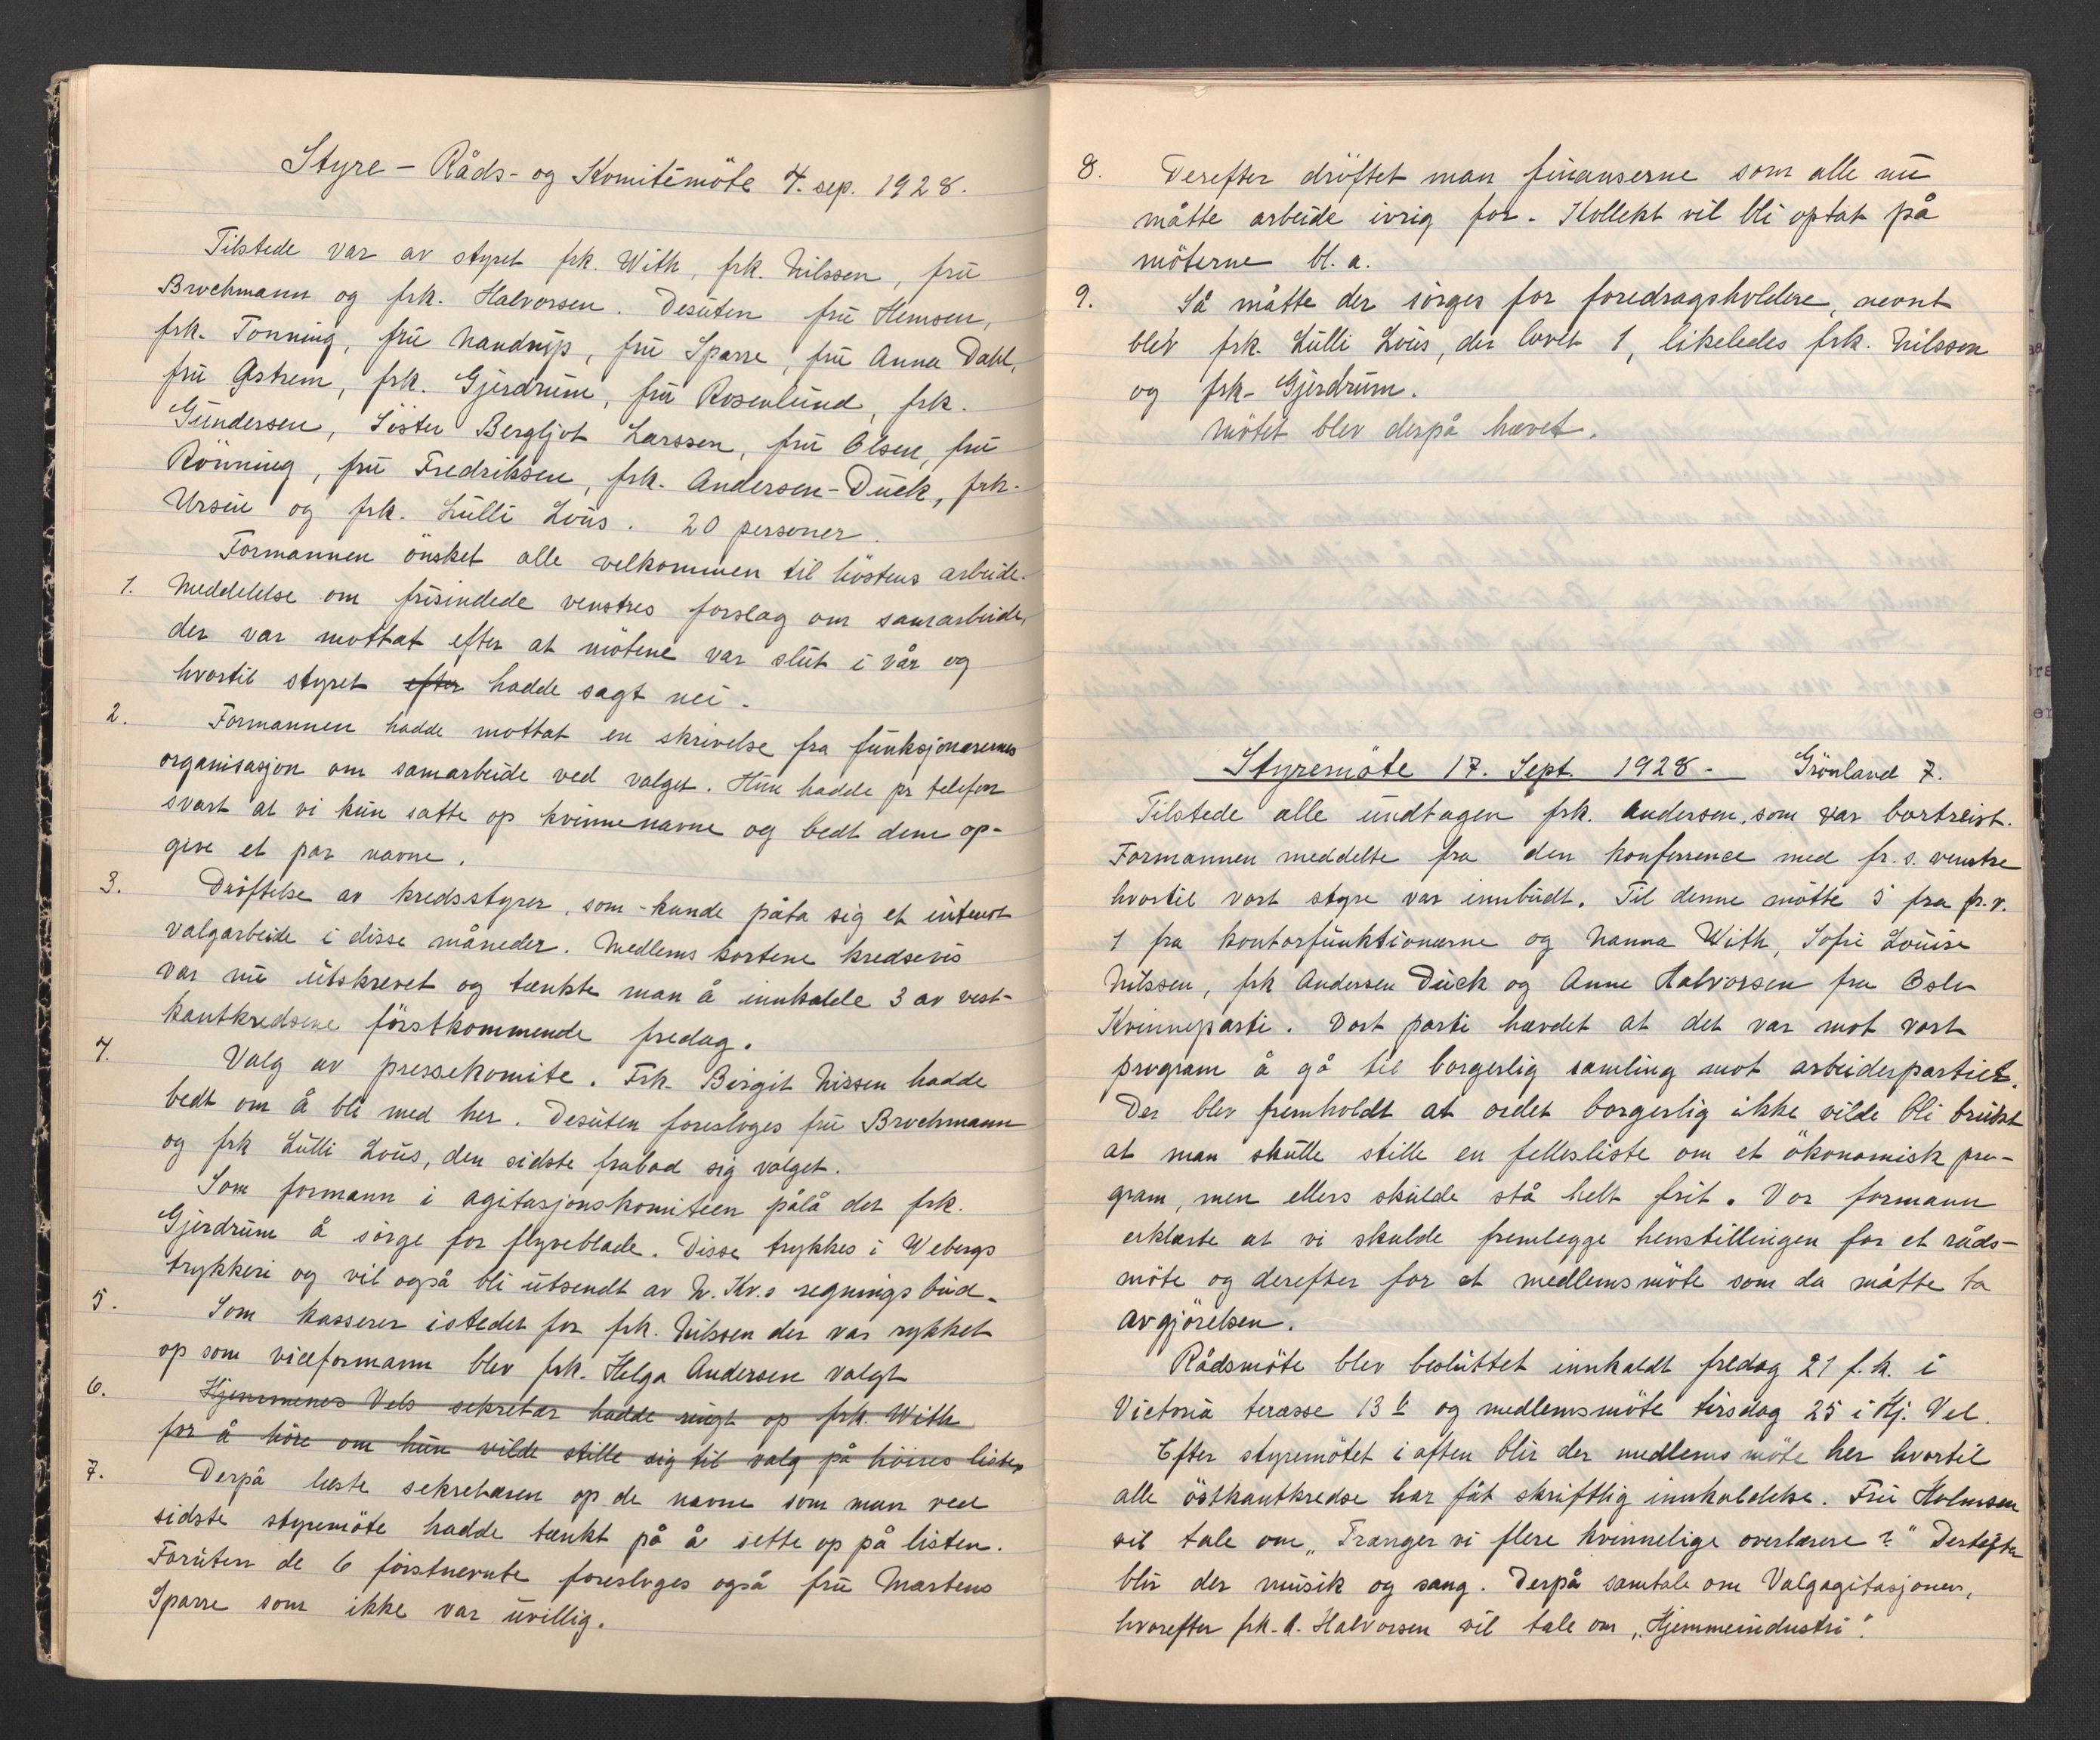 Styre- Råds- og Komitémöte 4. sep. 1928.
Tilstede var av styret frk. With, frk. Nilssen, fru
Brochmann og frk. Halvorsen. Desuten fru Hemsen,
frk. Tonning, fru Nandrup, fru Sparre, fru Anna Dahl,
fru Østrem, frk. Gjerdrum, fru Rosenlund, frk.
Gundersen, Söster Bergljot Larssen, fru Olsen, fru
Rönning, fru Fredriksen, frk. Andersen-Duck, frk.
Ursin og frk. Lulli Lous. 20 personer.
Formannen önsket alle velkommen til höstens arbeide.
1. Meddelelse om frisindede venstres forslag om samarbeide,
der var mottat efter at mötene var slut i vår og
hvortil styret efter hadde sagt nei.
2. Formannen hadde mottat en skrivelse fra funksjonærernes
organisasjon om samarbeide ved valget. Hun hadde pr telefon
svart at vi kun satte op kvinnenavne og bedt dem op-
give et par navne.
3. Dröftelse av kredsstyrer, som kunde påta sig et intenst
valgarbeide i disse måneder. Medlems kortene kredsevis
var nu utskrevet og tænkte man å innkalde 3 av vest-
kantkredsene förstkommende fredag.
4. Valg av pressekomite. Frk. Birgit Nissen hadde
bedt om å bli med her. Desuten foresloges fru Brochmann
og frk Lulli Lous, den sidste frabad sig valget.
Som formann i agitasjonskomiteen pålå det frk.
Gjerdrum å sörge for flyveblade. Disse trykkes i Webergs
trykkeri og vil også bli utsendt av N. Kv.s regningsbud.
5. Som kasserer istedet for frk. Nilssen der var rykket
op som viceformann blev frk. Helga Andersen valgt
6. Hjemmenes Vels sekretær hadde ringt op frk. With
for å höre om hun vilde stille sig til valg på höires liste.
7. Derpå læste sekretæren op de navne som man ved
sidste styremöte hadde tænkt på å sette op på listen.
Foruten de 6 förstnevnte foresloges også fru Martens
Sparre som ikke var uvillig.
8. Derefter dröftet man finanserne som alle nu
måtte arbeide ivrig for. Kollekt vil bli optat på
möterne bl. a.
9. Så måtte der sörges for foredragsholdere, nevnt
blev frk. Lulli Lous, der lovet 1, likeledes frk. Nilssen
og frk. Gjerdrum.
Mötet blev derpå hævet.
Styremöte 17. Sept. 1928. Grönland 7.
Tilstede alle undtagen frk. Andersen, som var bortreist.
Formannen meddelte fra den konferrence med fr. s. venstre
hvortil vort styre var innbudt. Til denne mötte 5 fra fr. v.
1 fra kontorfunktionærne og Nanna With, Sofie Louise
Nilssen, frk Andersen Duck og Anne Halvorsen fra Oslo
Kvinneparti. Vort parti hævdet at det var mot vort
program å gå til borgerlig samling mot arbeiderpartiet.
Der blev fremholdt at ordet borgerlig ikke vilde bli brukt
at man skulle stille en fellesliste om et ökonomisk pro-
gram, men ellers skulde stå helt frit. Vor formann
erklærte at vi skulde fremlegge henstillingen for et råds-
möte og derefter for et medlemsmöte som da måtte ta
avgjörelsen.
Rådsmöte blev besluttet innkaldt fredag 21 f. k. i
Victoria terasse 13 b og medlemsmöte tirsdag 25 i Hj. Vel.
Efter styremötet i aften blir der medlemsmöte her hvortil
alle östkantkredse har fåt skriftlig innkaldelse. Fru Holmsen
vil tale om „Trænger vi flere kvinnelige overlærere?" Derefter
blir der musik og sang. Derpå samtale om Valgagitasjonen,
hvorefter frk. A. Halvorsen vil tale om „Hjemmeindustri".